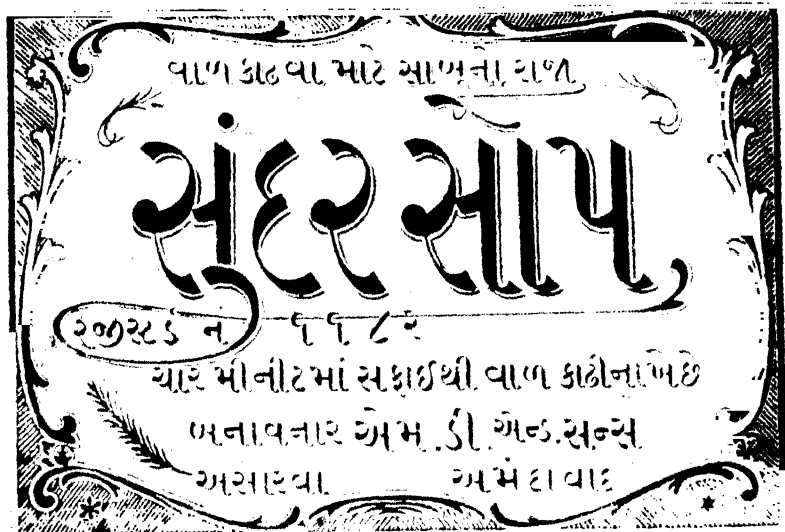 વાળ કાઢવા માટે સાબુનો રાજા
સુંદર સોપ
રજીસ્ટર્ડ નં ૧૧૮૨
ચાર મીનીટમાં સફાઈથી વાળ કાઢી નાખે છે
બનાવનાર એમ. ડી. એન્ડ. સન્સ
અસારવા અમદાવાદ